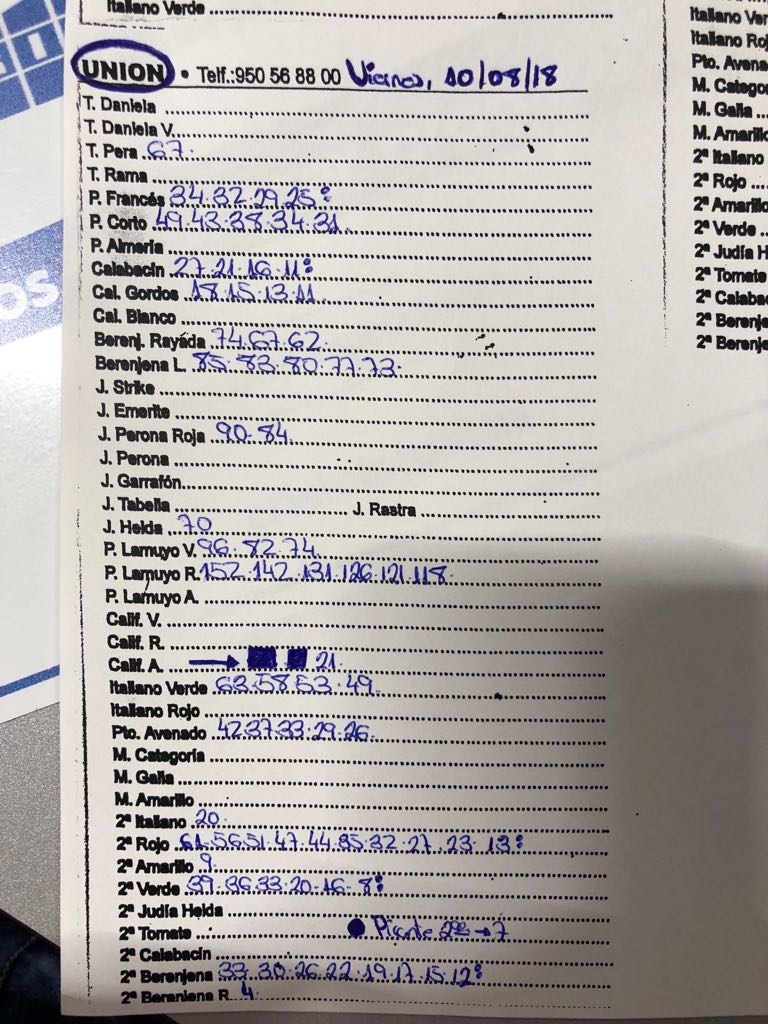 Italiano Verde
UNION • Telf.:950 56 88 00 Viernes, 10/08/18
T. Daniela
T. Daniela V.
T. Pera 67.
T. Rama
P. Francés 34.32.29.25:
P. Corto 49.43.38.34.31.
P. Almería
Calabacín 27.21.16.11:
Cal. Gordos 18.15.13.11
Cal. Blanco
Berenj. Rayada 74.67.62.
Berenjena L. 85.83.80.77.73.
J. Strike
J. Emerite
J. Perona Roja 90.84.
J. Perona
J. Garrafón
J. Tabella J. Rastra
J. Helda 70
P. Lamuyo V. 96.82.74.
P. Lamuyo R. 152.142.131.126.121.118.
P. Lamuyo A.
Calif. V.
Calif. R.
Calif. A. → 21.
Italiano Verde 63.58.53.49.
Italiano Rojo
Pto. Avenado 42.37.33.29.26.
M. Categoría
M. Galia
M. Amarillo
2ª Italiano 20.
2ª Rojo 61.56.51.47.44.35.32.27.23.13:
2ª Amarillo 9.
2ª Verde 39.36.33.20.16.8:
2ª Judía Helda
2ª Tomate • Picante 2ª → 7
2ª Calabacín
2ª Berenjena 33.30.26.22.19.17.15.12:
2ª Berenjena R. 4.
Italiano
Italiano
Pto.
M.
M. Galia
M.
2ª Italiano
2ª Rojo
2ª
2ª Verde
2ª Judía
2ª
2ª
2ª
2ª
OS